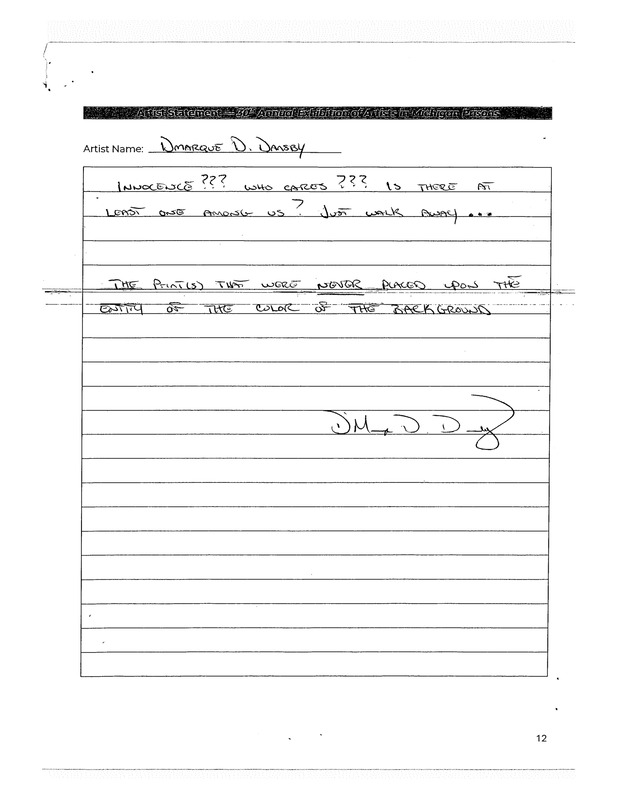 Artist Statement — 30th Annual Exhibition of Artists in Michigan Prisons
Artist Name: DMARQUE D. DANSBY
INNOCENCE??? WHO CARES??? IS THERE AT
LEAST ONE AMONG US? JUST WALK AWAY...
THE PRINT(S) THAT WERE NEVER PLACED UPON THE
ENTITY OF THE COLOR OF THE BACKGROUND
12